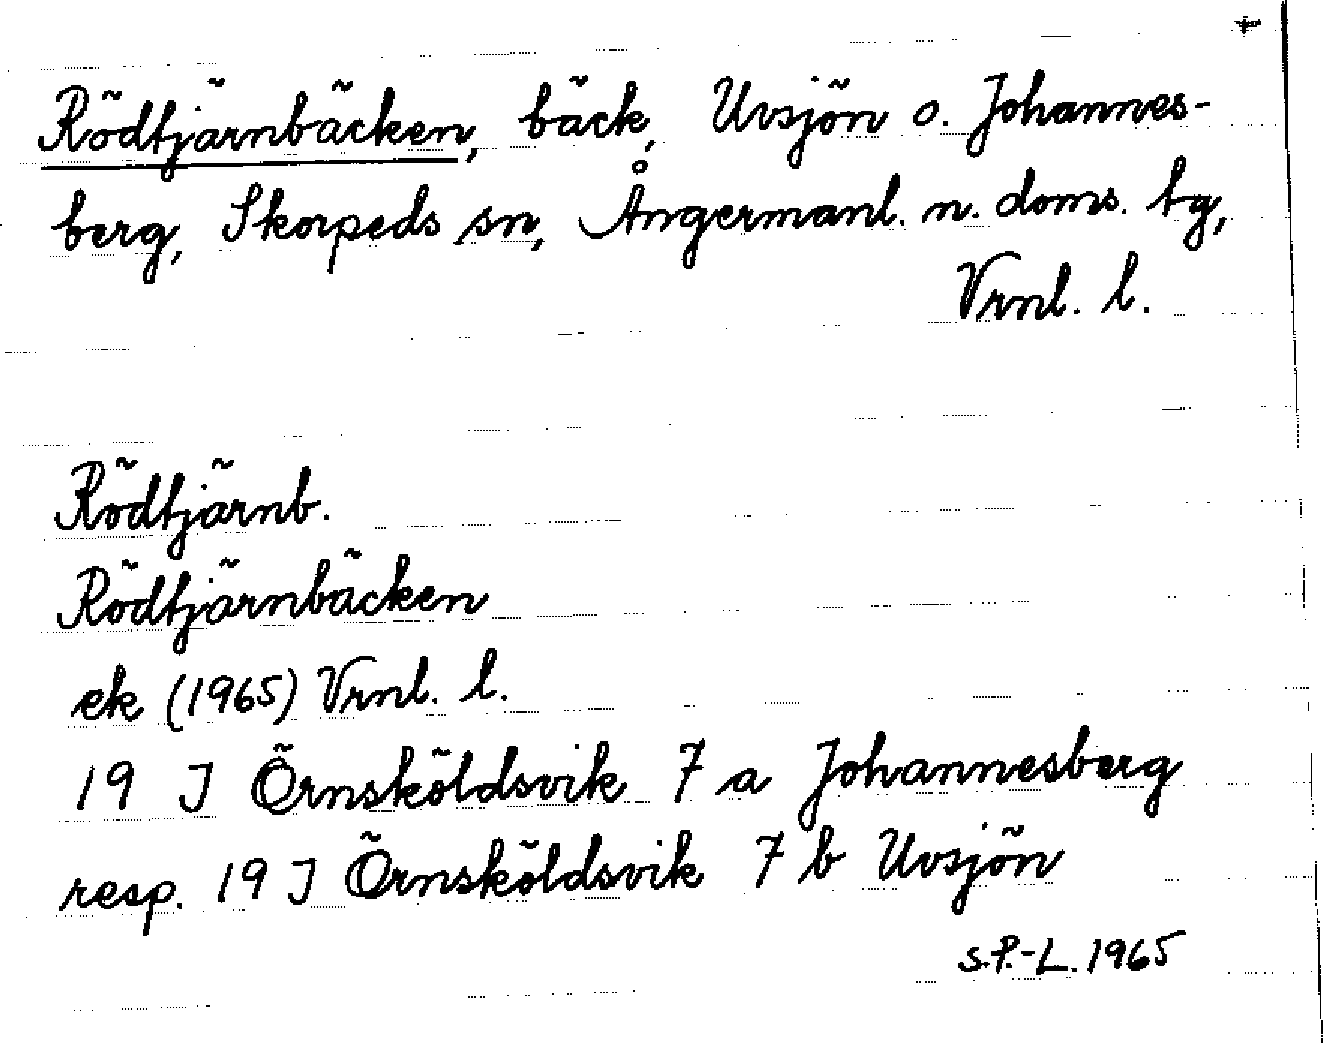 Rödtjärnbäcken, bäck, Uvsjön o. Johannes-
berg, Skorpeds sn, Ångermanl. n. doms. tg,
Vrnl. l.
Rödtjärnb.
Rödtjärnbäcken
ek (1965) Vrnl. l.
19 J Örnsköldsvik 7 a Johannesberg
resp. 19 J Örnsköldsvik 7 b Uvsjön
S.P.-L. 1965